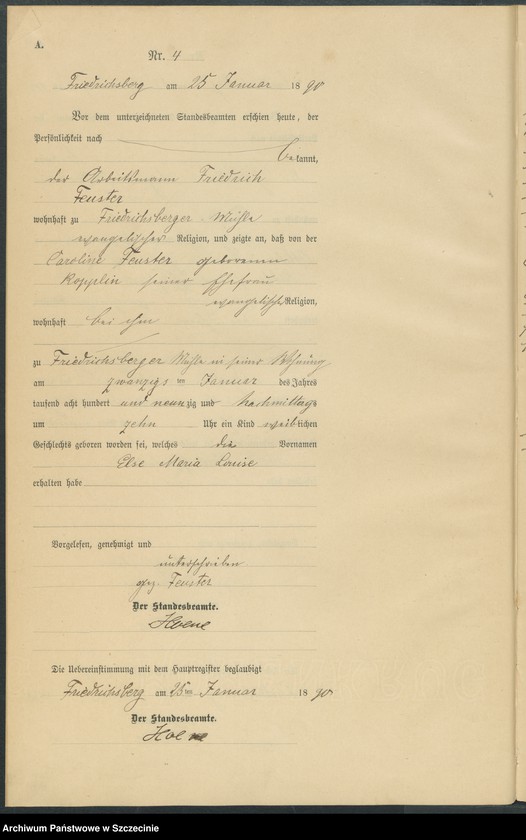 A.
Nr. 4
Friedrichsberg am 25 Januar 1890
Vor dem unterzeichneten Standesbeamten erschien heute, der
Persönlichkeit nach
bekannt,
der Arbeitsmann Friedrich
Feuster
wohnhaft zu Friedrichsberger Mühle
evangelischer Religion, und zeigte an, daß von der
Caroline Feuster geborenen
Koppelin seiner Ehefrau
evangelisch Religion,
wohnhaft bei ihm
zu Friedrichsberger Mühle in seiner Wohnung
am zwanzigsten Januar des Jahres
tausend acht hundert und neunzig und Nachmittags
um zehn Uhr ein Kind weiblichen
Geschlechts geboren worden sei, welches die Vornamen
Else Maria Louise
erhalten habe
Vorgelesen, genehmigt und
unterschrieben
gez. Feuster
Der Standesbeamte.
Hoene
Die Uebereinstimmung mit dem Hauptregister beglaubigt
Friedrichsberg am 25ten Januar 1890
Der Standesbeamte.
Hoene
Archiwum Państwowe w Szczecinie